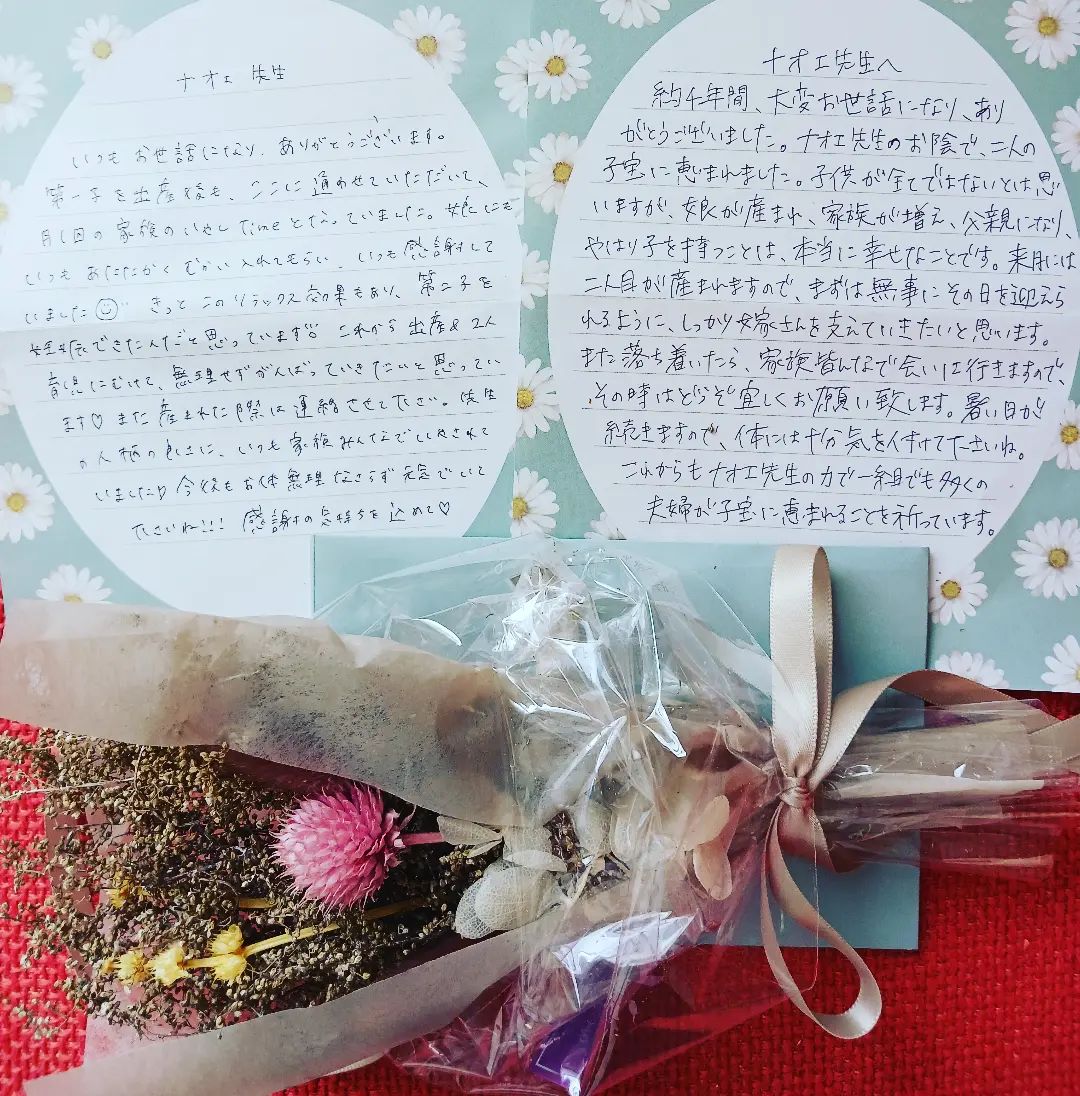 ナオエ 先生
いつも お世話になり、ありがとうございます。
第一子を出産後も、ここに通わせていただいて、
月1回の家族のいやしTimeとなっていました。娘にも
いつも あたたかく むかい入れてもらい、いつも感謝して
いました☺ きっと このリラックス効果もあり、第二子を
妊娠できたんだと思っています!! これから 出産& 2人
育児にむけて、無理せずがんばっていきたいと思ってい
ます♡ また 産まれた際は連絡させて下さい。先生
の人柄の良さに、いつも家族みんなでいやされて
いました!! 今後もお体無理なさらず 元気でいて
ださいね!!! 感謝の気持ちを込めて♡
ナオエ先生へ
約4年間、大変お世話になり、あり
がとうございました。ナオエ先生のお陰で、二人の
子宝に恵まれました。子供が全てではないとは思
いますが、娘が産まれ、家族が増え、父親になり、
やはり子を持つことは、本当に幸せなことです。来月には
二人目が産まれますので、まずは無事にその日を迎えら
れるように、しっかり嫁さんを支えていきたいと思います。
また落ち着いたら、家族皆んなで会いに行きますので、
その時はどうぞ宜しくお願い致します。暑い日が
続きますので、体には十分気を付けて下さいね。
これからもナオエ先生の力で一組でも多くの
夫婦が子宝に恵まれることを祈っています。